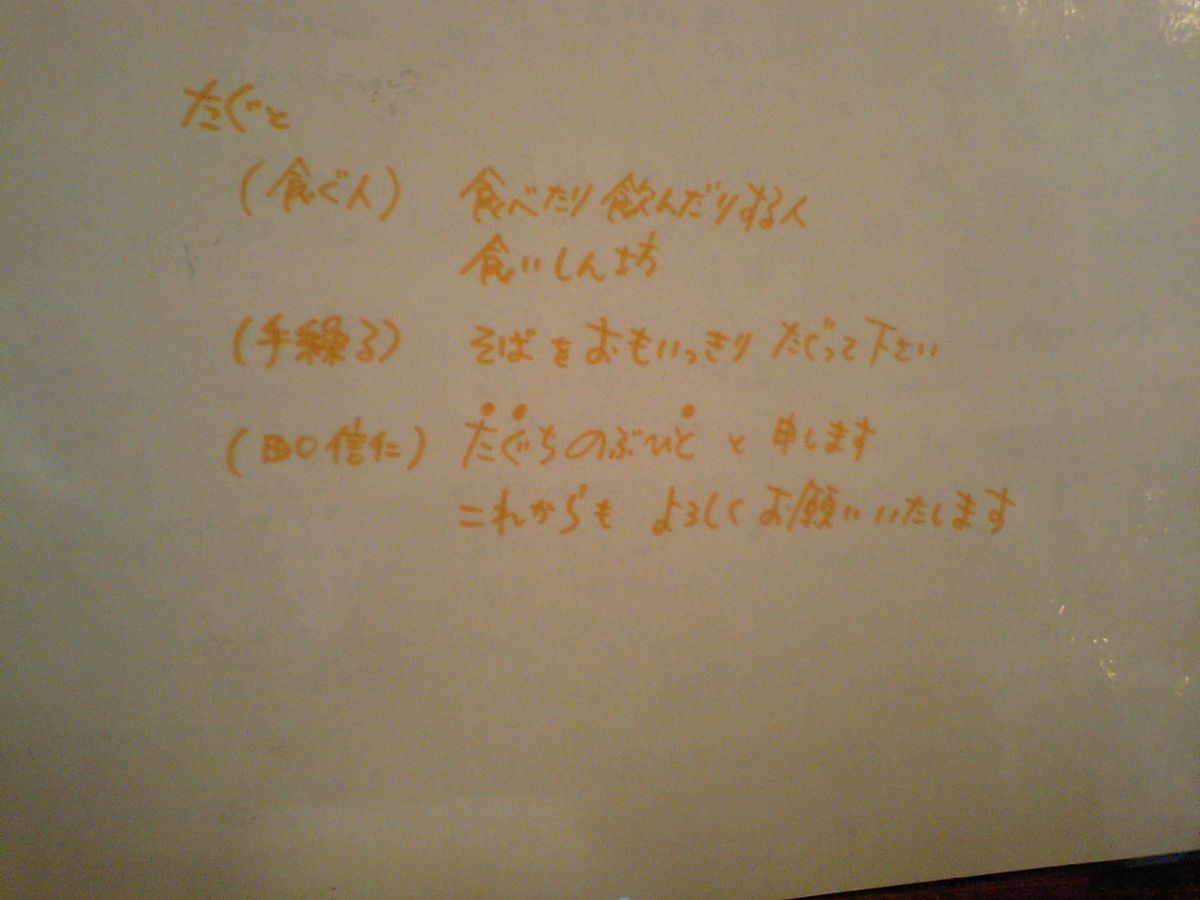 たぐと
(食ぐ人) 食べたり飲んだりする人
食いしん坊
(手繰る) そばをおもいっきり たぐって下さい
(田口信仁) たぐちのぶひと と申します
これからも よろしくお願いいたします